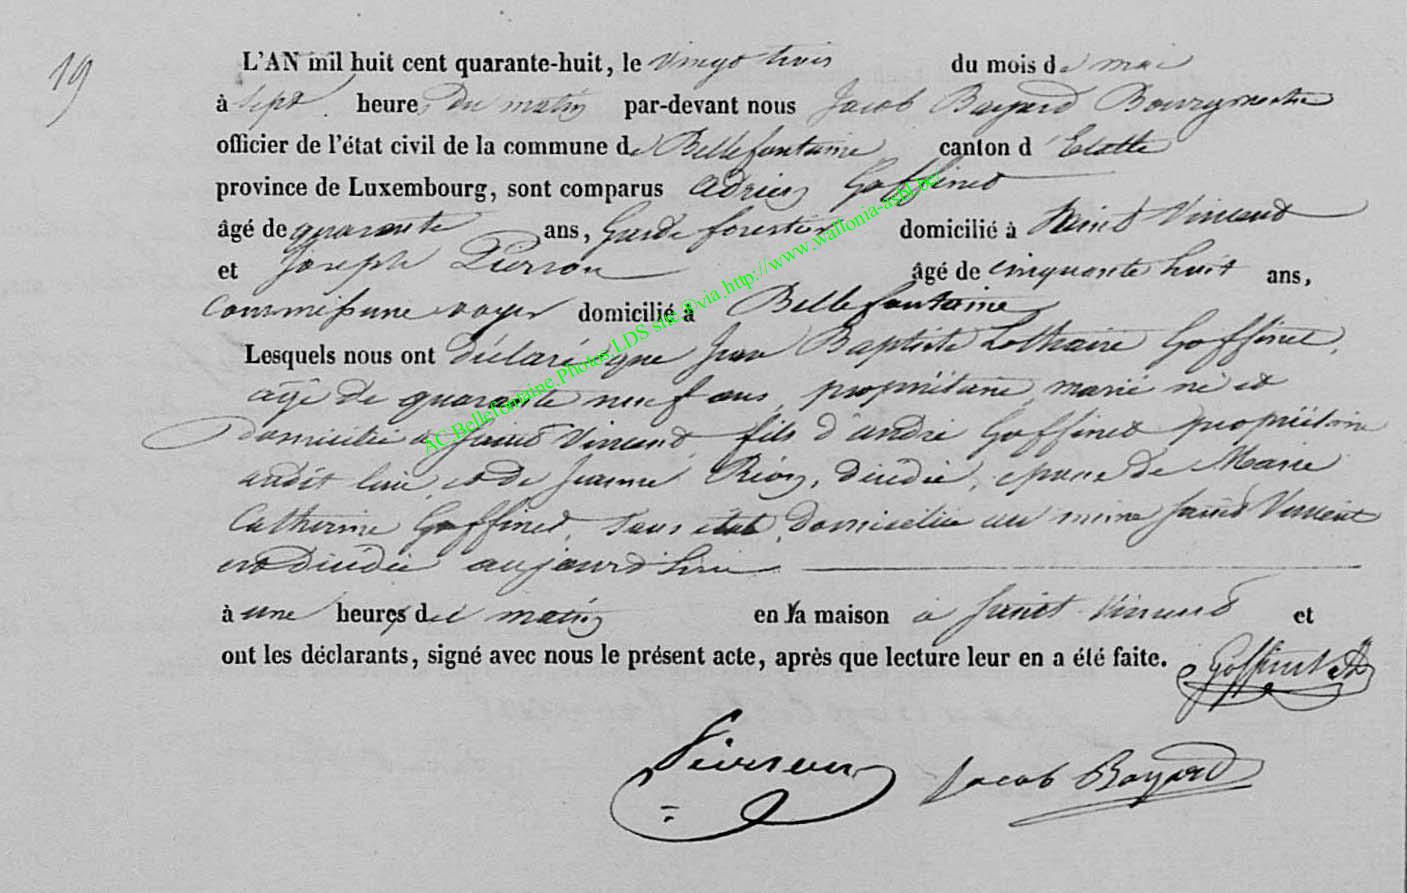 19
L'AN mil huit cent quarante-huit, le vingt trois du mois de mai
à sept heures du matin par-devant nous Jacob Bayard Bourgmestre
officier de l'état civil de la commune de Bellefontaine canton d'Etalle
province de Luxembourg, sont comparus Adrien Goffinet
âgé de quarante ans, Garde forestier domicilié à Saint Vincent
et Joseph Pierson âgé de cinquante huit ans,
Commissaire voyer domicilié à Bellefontaine
Lesquels nous ont déclaré que Jean Baptiste Lothaire Goffinet,
agé de quarante neuf ans propriétaire, marié né et
domicilié à Saint Vincent, fils d'andré Goffinet propriétaire
audit lieu, et de Jeanne décédée, epoux de Marie
Catherine Goffinet, sans etat, domiciliée au meme Saint Vincent
est décédé aujourd'hui
à une heures du matin en sa maison à Saint Vincent et
ont les déclarants, signé avec nous le présent acte, après que lecture leur en a été faite. Goffinet
Pierson Jacob Bayard
AC.Bellefontaine.Photos.LDS site @via http://www.wallonia-asbl.be/